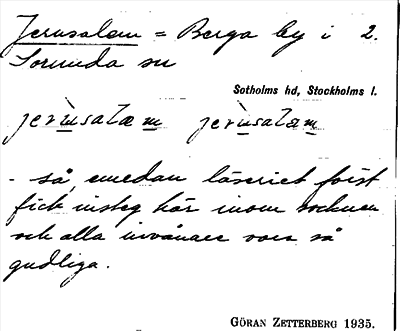 Jerusalem = Berga by i 2.
Sorunda sn
Sotholms hd, Stockholms l.
jerùsalæm jerùsalæm
- så, emedan läseriet först
fick insteg här inom socknen
och alla invånare voro så
gudliga.
GÖRAN ZETTERBERG 1935.